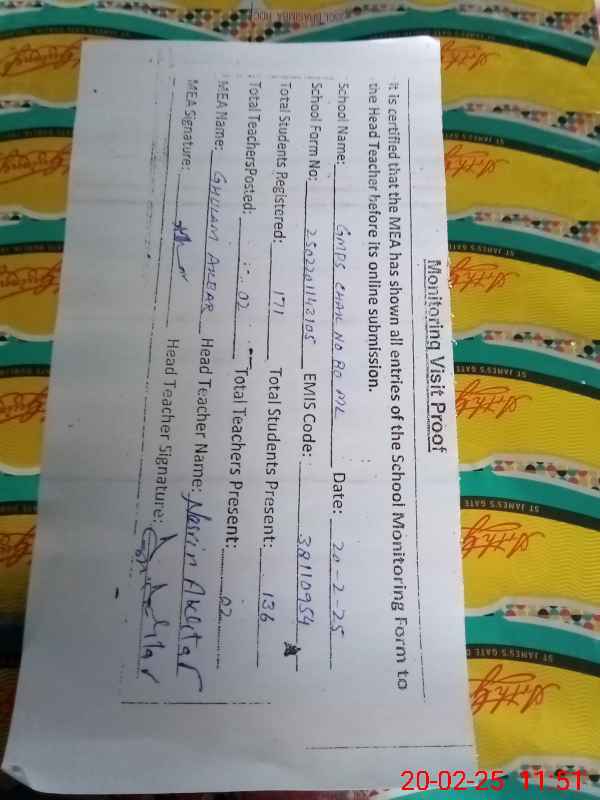 Monitoring Visit Proof
It is certified that the MEA has shown all entries of the School Monitoring Form to
the Head Teacher before its online submission.
School Name: GMPS CHAK NO 80 ML Date: 20-2-25
School Form No: 2502201142105 EMIS Code: 38110954
Total Students Registered: 171 Total Students Present: 136
Total TeachersPosted: 02 Total Teachers Present: 02
MEA Name: GHULAM AKBAR Head Teacher Name: Nasrin Akhtar
MEA Signature: Head Teacher Signature:
ST JAMES'S GATE
20-02-25 11:51